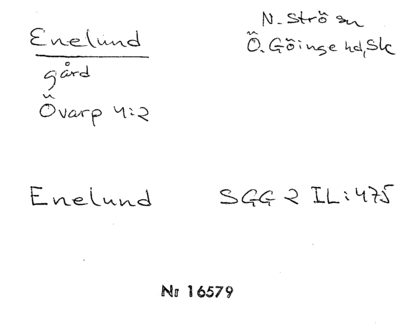 Enelund
gård
Övarp 4:2
N. Strö sn
Ö. Göinge hd, Sk
Enelund
SGG 2 IL:475
Nr 16579